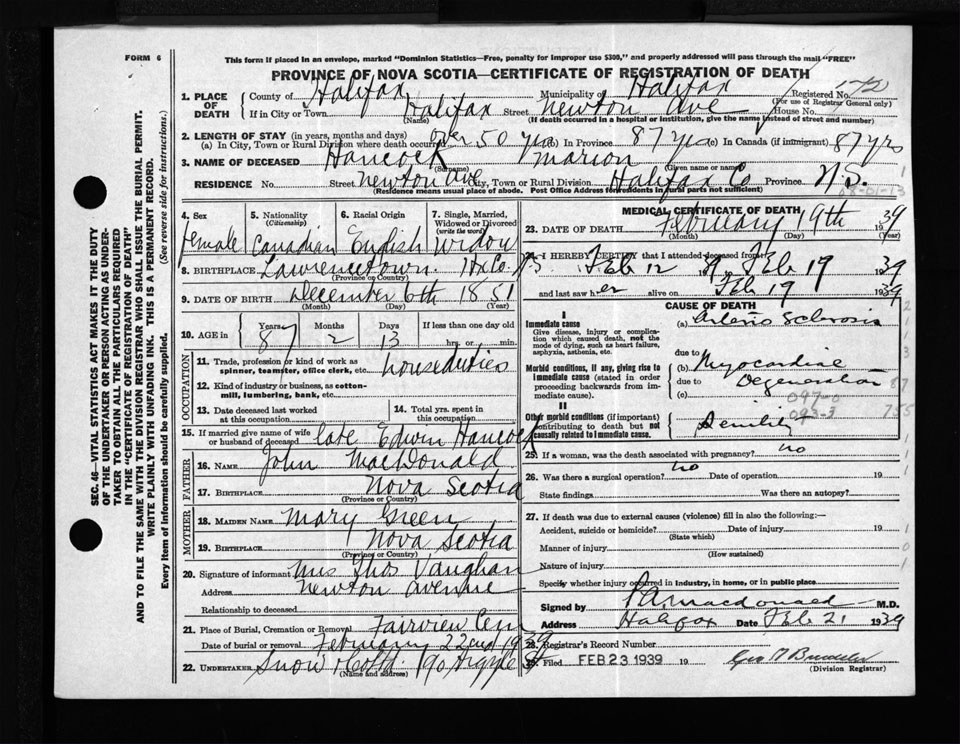 FORM 6
This form if placed in an envelope, marked "Dominion Statistics—Free, penalty for improper use $300," and properly addressed will pass through the mail "FREE"
PROVINCE OF NOVA SCOTIA—CERTIFICATE OF REGISTRATION OF DEATH
1. PLACE OF DEATH
County of Halifax Municipality of Halifax Registered No.
(For use of Registrar General only)
If in City or Town Halifax Street Newton Ave House No.
(Name) (If death occurred in a hospital or institution, give the name instead of street and number)
2. LENGTH OF STAY (in years, months and days)
(a) In City, Town or Rural Division where death occurred over 50 yrs (b) In Province 87 yrs (c) In Canada (if immigrant) 87 yrs
3. NAME OF DECEASED Hancock Marion
(Surname) (Given name or names)
RESIDENCE No. Street Newton Ave City, Town or Rural Division Halifax Co Province N.S.
(Residence means usual place of abode. Post Office Address for residents in rural parts not sufficient)
4. Sex female
5. Nationality (Citizenship) Canadian
6. Racial Origin English
7. Single, Married, Widowed or Divorced (write the word) Widow
8. BIRTHPLACE Lawrencetown. Hx Co. N.S
9. DATE OF BIRTH December 6th 1851
(Month) (Day) (Year)
10. AGE in Years 87 Months 2 Days 13 If less than one day old hrs. or min.
OCCUPATION
11. Trade, profession or kind of work as spinner, teamster, office clerk, etc. houseduties
12. Kind of industry or business, as cotton-mill, lumbering, bank, etc.
13. Date deceased last worked at this occupation
14. Total yrs. spent in this occupation
15. If married give name of wife or husband of deceased late Edwin Hancock
FATHER
16. NAME John MacDonald
17. BIRTHPLACE Nova Scotia
(Province or Country)
MOTHER
18. MAIDEN NAME Mary Green
19. BIRTHPLACE Nova Scotia
(Province or Country)
20. Signature of informant Mrs Thos Vaughan
Address Newton Avenue
Relationship to deceased
21. Place of Burial, Cremation or Removal Fairview Cem
Date of burial or removal February 22nd 1939
22. UNDERTAKER Snow & Co Ltd. 90 Argyle St
(Name and address)
MEDICAL CERTIFICATE OF DEATH
23. DATE OF DEATH February 19th 1939
(Month) (Day) (Year)
24. I HEREBY CERTIFY that I attended deceased from
Feb 12 39, Feb 19 1939
and last saw her alive on Feb 19 1939
CAUSE OF DEATH
I
Immediate cause
Give disease, injury or complication which caused death, not the mode of dying, such as heart failure, asphyxia, asthenia, etc.
(a) Arterio Sclerosis
due to
Morbid conditions, if any, giving rise to immediate cause (stated in order proceeding backwards from immediate cause).
(b) Myocardial
due to Degeneration
(c)
097-0
093-3
II
Other morbid conditions (if important) contributing to death but not causally related to immediate cause.
Senility
25. If a woman, was the death associated with pregnancy? no
26. Was there a surgical operation? no Date of operation 19
State findings Was there an autopsy?
27. If death was due to external causes (violence) fill in also the following:—
Accident, suicide or homicide? Date of injury 19
(State which)
Manner of injury
(How sustained)
Nature of injury
Specify whether injury occurred in industry, in home, or in public place
Signed by P A Macdonald M.D.
Address Halifax Date Feb 21 1939
28. Registrar's Record Number
29. Filed FEB 23 1939 19
(Division Registrar)
SEC. 46—VITAL STATISTICS ACT MAKES IT THE DUTY OF THE UNDERTAKER OR PERSON ACTING AS UNDERTAKER TO OBTAIN ALL THE PARTICULARS REQUIRED IN THE "CERTIFICATE OF REGISTRATION OF DEATH" AND TO FILE THE SAME WITH THE DIVISION REGISTRAR WHO SHALL ISSUE THE BURIAL PERMIT.
WRITE PLAINLY WITH UNFADING INK. THIS IS A PERMANENT RECORD.
Every item of information should be carefully supplied. (See reverse side for instructions.)